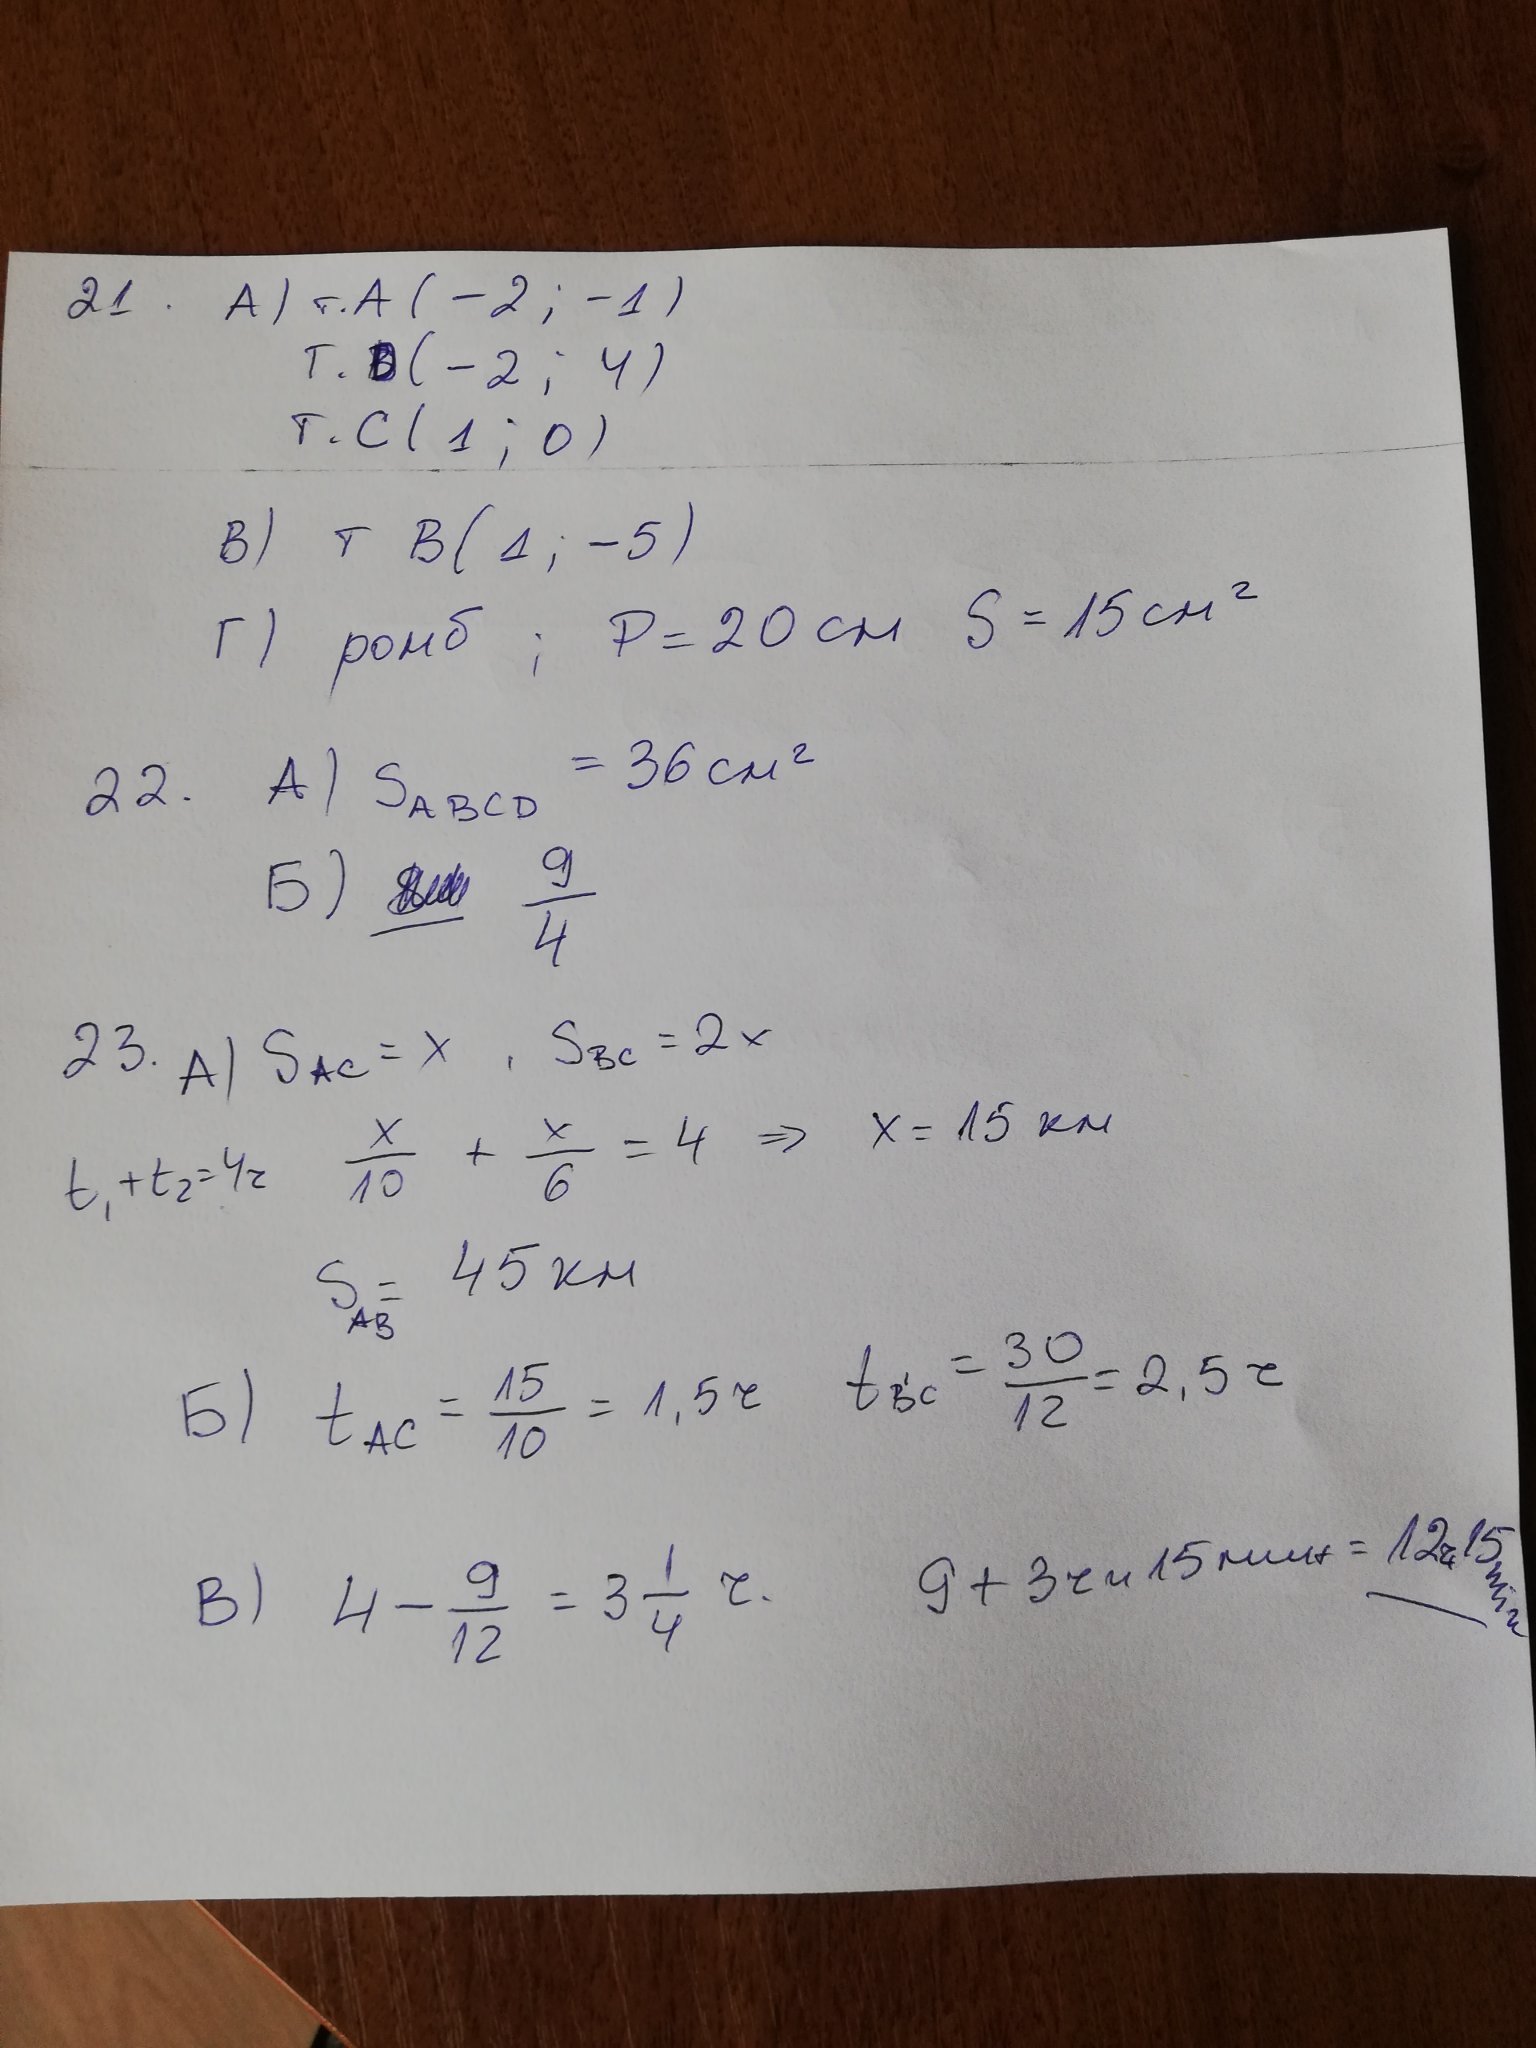 21. А) т.А(-2; -1)
т.В(-2; 4)
т.С(1; 0)
В) т В(1; -5)
Г) ромб; P=20 см S=15 см²
22. А) S_ABCD = 36 см²
Б) 9/4
23. А) S_AC = x, S_BC = 2x
t₁+t₂=4ч x/10 + x/6 = 4 ⇒ x=15 км
S_AB = 45 км
Б) t_AC = 15/10 = 1,5 ч t_BC = 30/12 = 2,5 ч
В) 4 - 9/12 = 3 1/4 ч. 9+3ч и 15 мин = 12ч 15 min